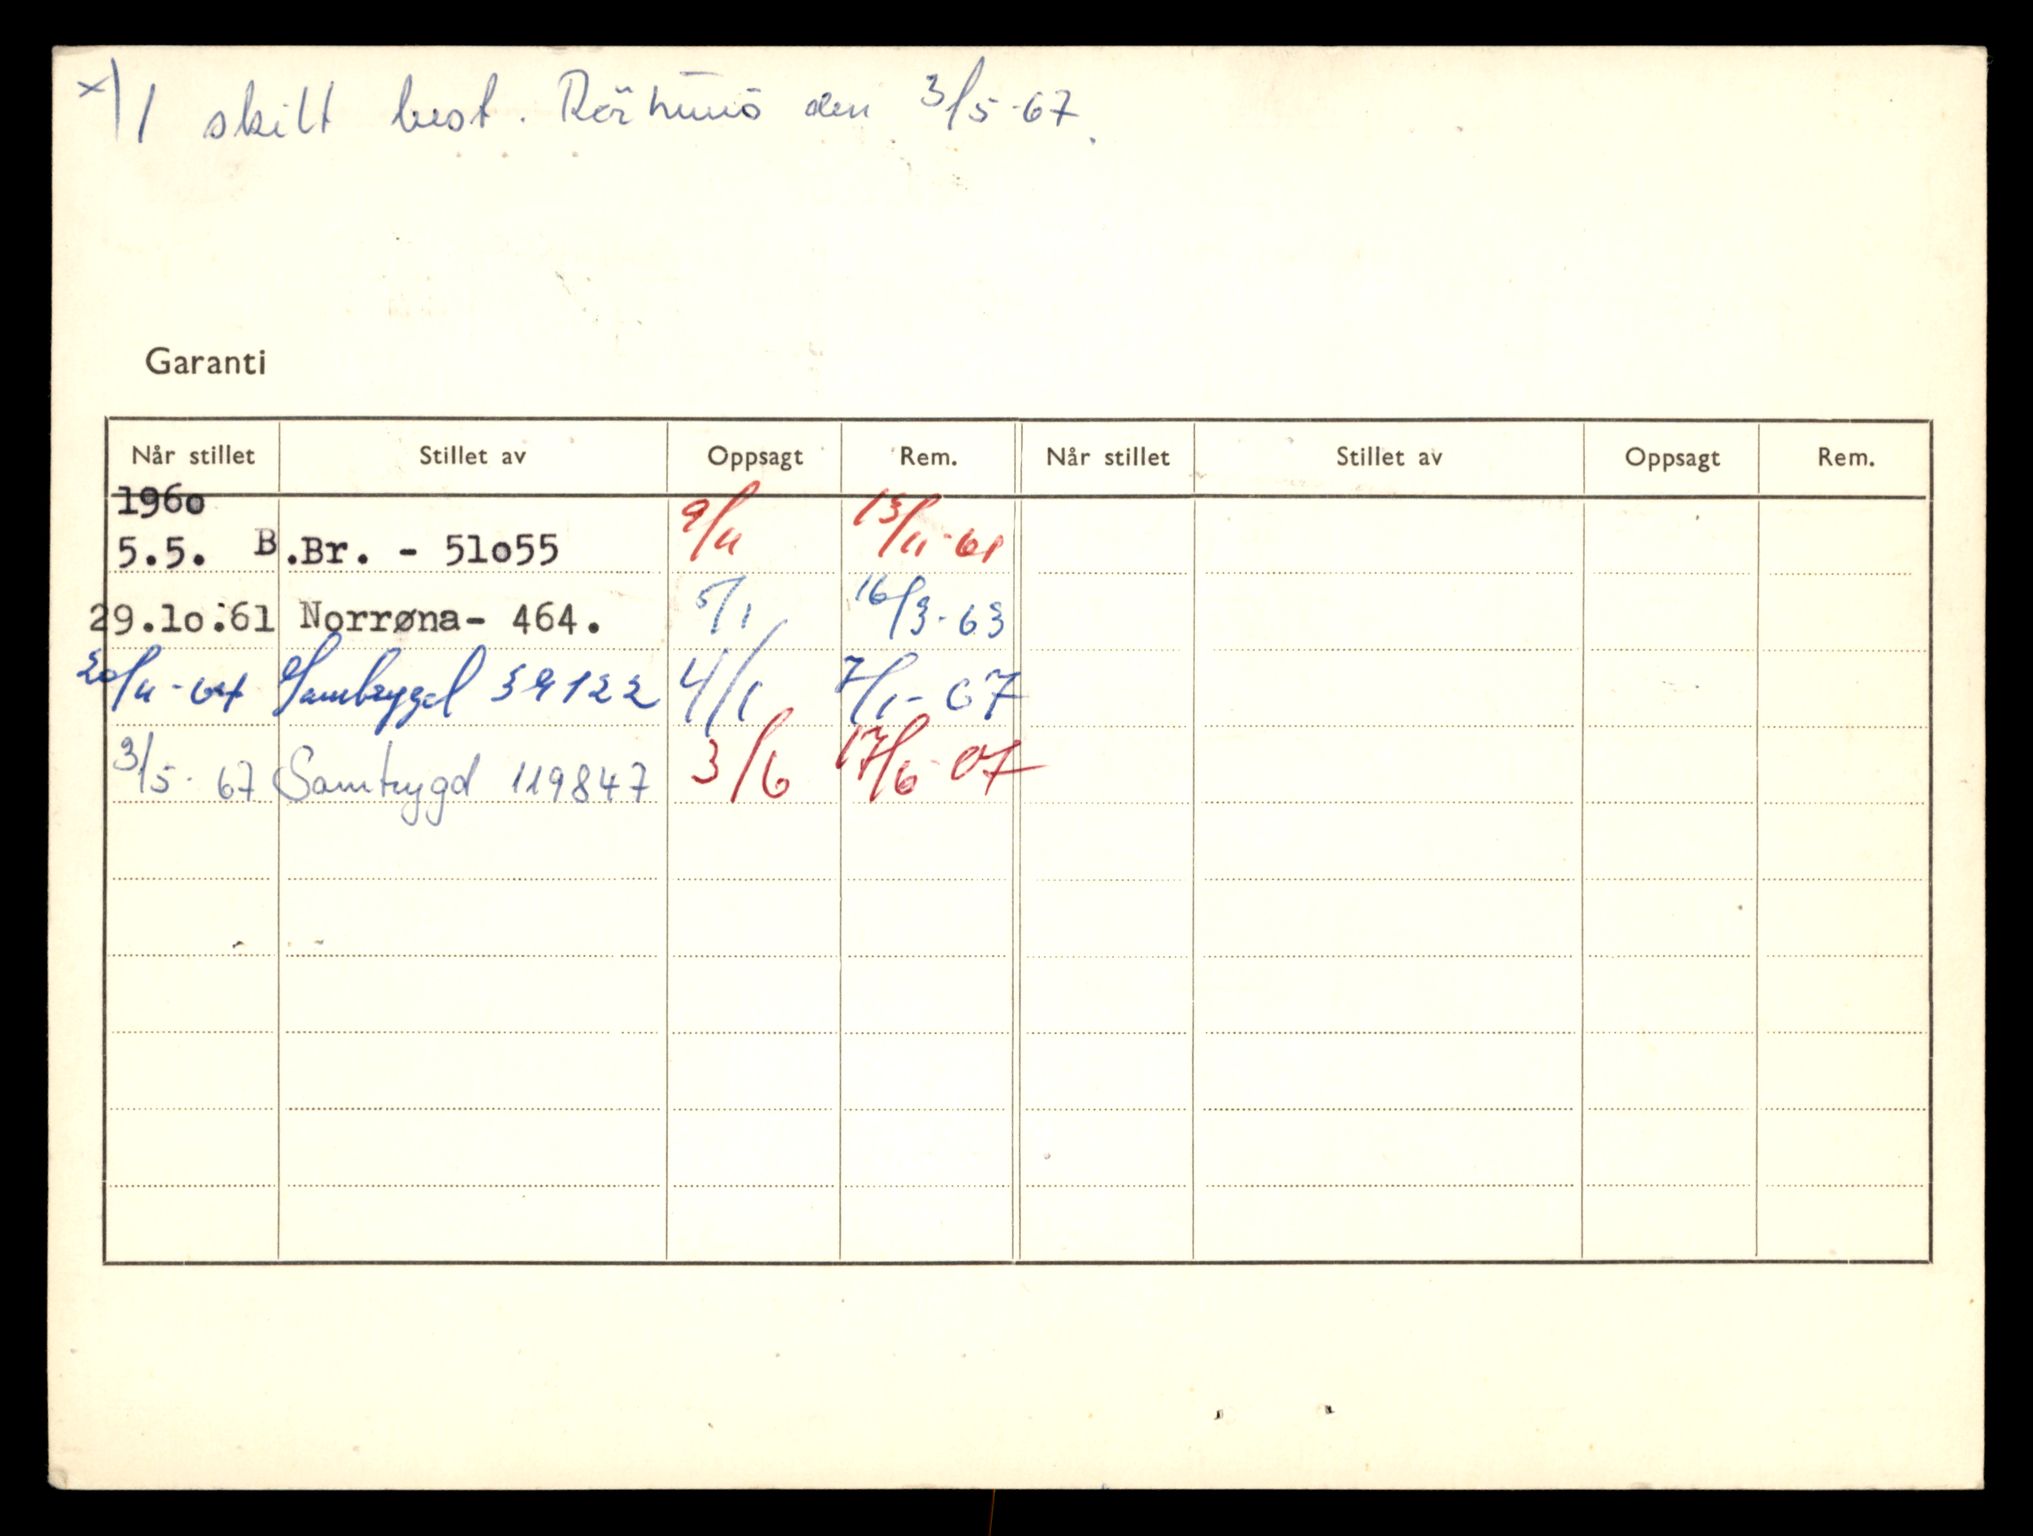 x) 1 skilt best. den 3/5-67.
Garanti
Når stillet Stillet av Oppsagt Rem. Når stillet Stillet av Oppsagt Rem.
1960
5.5. B.Br. - 51o55 9/11 13/11-61
29.1o.61 Norrøna- 464. 5/1 16/3-63
20/11-64 Samtrygd 39122 4/1 7/1-67
3/5-67 Samtrygd 119847 3/6 17/6-07